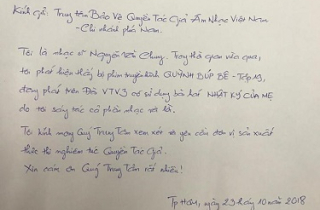 Kính gửi: Trung tâm Bảo Vệ Quyền Tác Giả Âm Nhạc Việt Nam
- Chi nhánh phía Nam.
Tôi là nhạc sĩ Nguyễn Văn Chung. Trong thời gian vừa qua,
tôi phát hiện thấy bộ phim truyền hình QUỲNH BÚP BÊ - Tập 13,
đang phát trên Đài VTV3 có sử dụng bài hát NHẬT KÝ CỦA MẸ
do tôi sáng tác cả phần nhạc và lời.
Tôi kính mong Quý Trung Tâm xem xét và yêu cầu đơn vị sản xuất
thực thi nghiêm túc Quyền Tác Giả.
Xin cám ơn Quý Trung Tâm rất nhiều!
Tp Hcm, ngày 23 th 10 năm 2018